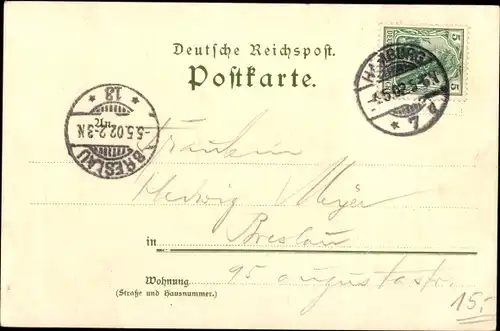 Deutsche Reichspost.
Postkarte.
HAMBURG
.5.02.
* 7 d
5
5
* 13 *
5.5.02.2-3N
BRESLAU
Fräulein
Hedwig Meyer
in Breslau
Wohnung 95 augustastr.
(Straße und Hausnummer.)
15,-